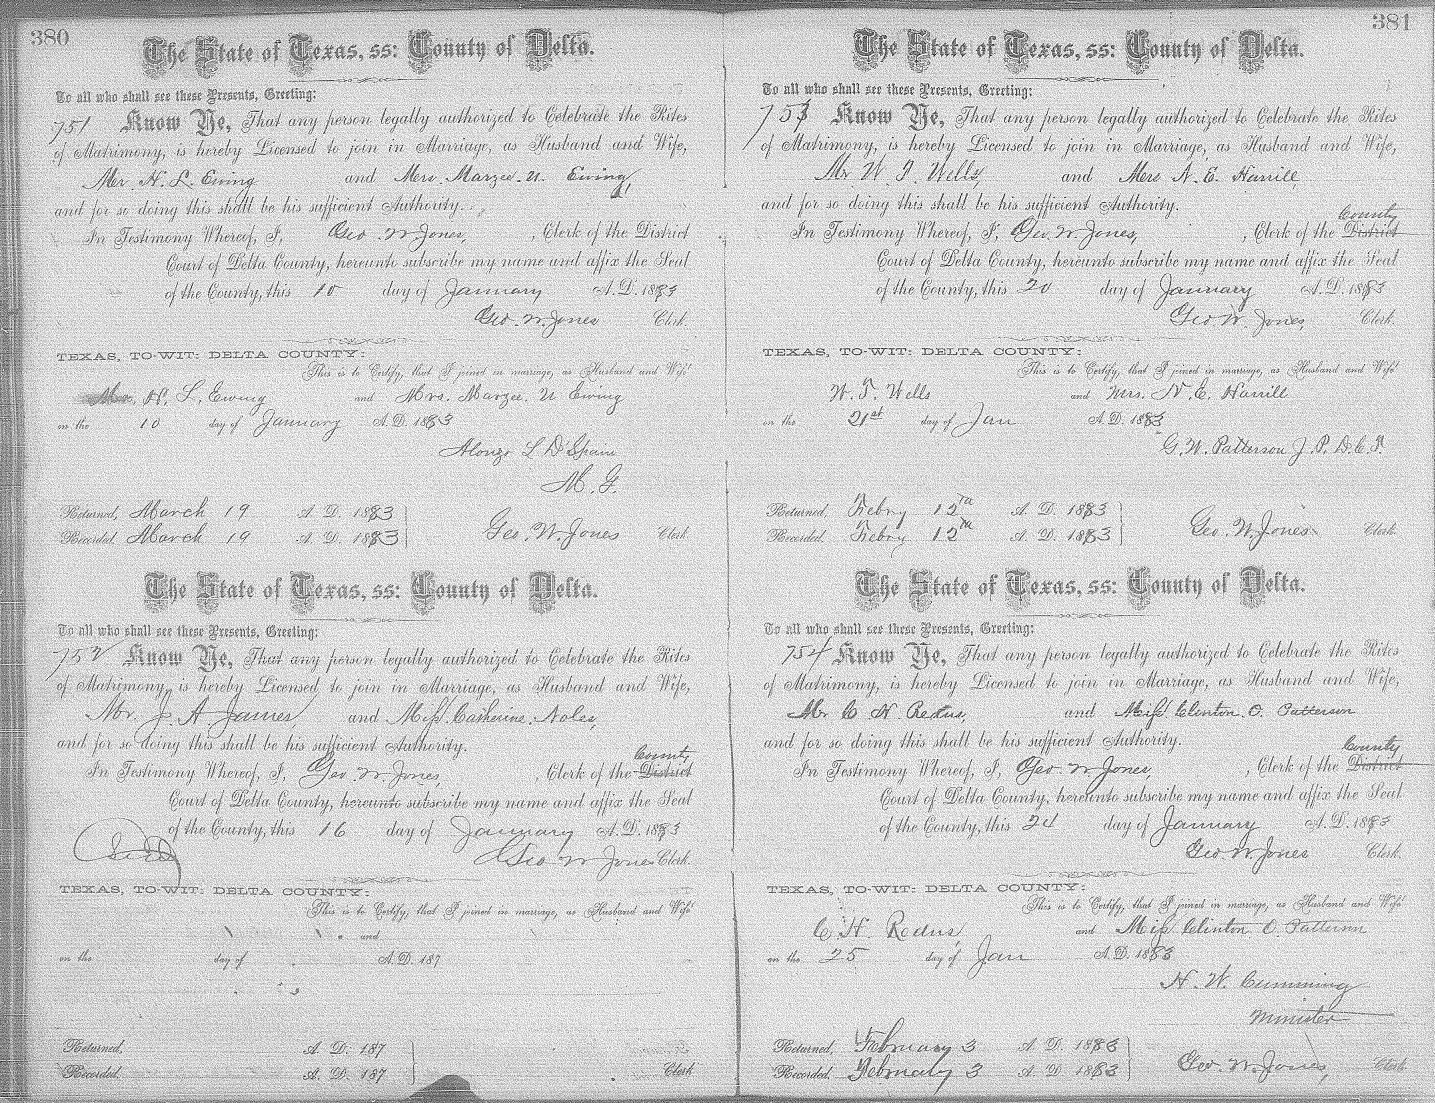 380
The State of Texas, ss: County of Delta.
To all who shall see these Presents, Greeting:
751 Know Ye, That any person legally authorized to Celebrate the Rites
of Matrimony, is hereby Licensed to join in Marriage, as Husband and Wife,
Mr. H. L. Ewing and Mrs. Marzee. U. Ewing,
and for so doing this shall be his sufficient Authority.
In Testimony Whereof, I, Geo W Jones, , Clerk of the District
Court of Delta County, hereunto subscribe my name and affix the Seal
of the County, this 10 day of January A. D. 1883
Geo. W. Jones Clerk.
TEXAS, TO-WIT: DELTA COUNTY:
This is to Certify, that I joined in marriage, as Husband and Wife
Mr. H. L. Ewing and Mrs. Marzee. U Ewing
on the 10 day of January A. D. 1883
Alonzo L D'Spain
M. G.
Returned, March 19 A. D. 1883
Recorded, March 19 A. D. 1883 Geo. W. Jones Clerk
The State of Texas, ss: County of Delta.
To all who shall see these Presents, Greeting:
752 Know Ye, That any person legally authorized to Celebrate the Rites
of Matrimony, is hereby Licensed to join in Marriage, as Husband and Wife,
Mr. J. A James and Miss. Catherine. Noles,
and for so doing this shall be his sufficient Authority.
County
In Testimony Whereof, I, Geo W Jones, , Clerk of the District
Court of Delta County, hereunto subscribe my name and affix the Seal
of the County, this 16 day of January A. D. 1883
Geo W Jones Clerk.
TEXAS, TO-WIT: DELTA COUNTY:
This is to Certify, that I joined in marriage, as Husband and Wife
and
on the day of A. D. 187
Returned, A. D. 187
Recorded, A. D. 187 Clerk
381
The State of Texas, ss: County of Delta.
To all who shall see these Presents, Greeting:
753 Know Ye, That any person legally authorized to Celebrate the Rites
of Matrimony, is hereby Licensed to join in Marriage, as Husband and Wife,
Mr W. T. Wells, and Mrs N. E. Harrill,
and for so doing this shall be his sufficient Authority.
County
In Testimony Whereof, I, Geo. W. Jones, , Clerk of the District
Court of Delta County, hereunto subscribe my name and affix the Seal
of the County, this 20 day of January A. D. 1883
Geo W. Jones, Clerk.
TEXAS, TO-WIT: DELTA COUNTY:
This is to Certify, that I joined in marriage, as Husband and Wife
W. T. Wells and Mrs. N. E. Harrill
on the 21st day of Jan A. D. 1883
G. W. Patterson J. P. D. C. T.
Returned, Febry 12th A. D. 1883
Recorded, Febry 12th A. D. 1883 Geo. W. Jones Clerk
The State of Texas, ss: County of Delta.
To all who shall see these Presents, Greeting:
754 Know Ye, That any person legally authorized to Celebrate the Rites
of Matrimony, is hereby Licensed to join in Marriage, as Husband and Wife,
Mr C H. Redus, and Miss Clinton. O. Patterson
and for so doing this shall be his sufficient Authority.
County
In Testimony Whereof, I, Geo. W Jones, , Clerk of the District
Court of Delta County, hereunto subscribe my name and affix the Seal
of the County, this 24 day of January A. D. 1883
Geo. W. Jones Clerk.
TEXAS, TO-WIT: DELTA COUNTY:
This is to Certify, that I joined in marriage, as Husband and Wife
C H. Redus and Miss Clinton O. Patterson
on the 25 day of Jan A. D. 1883
H. W. Cumming
Minister
Returned, February 3 A. D. 1883
Recorded, February 3 A. D. 1883 Geo. W. Jones, Clerk